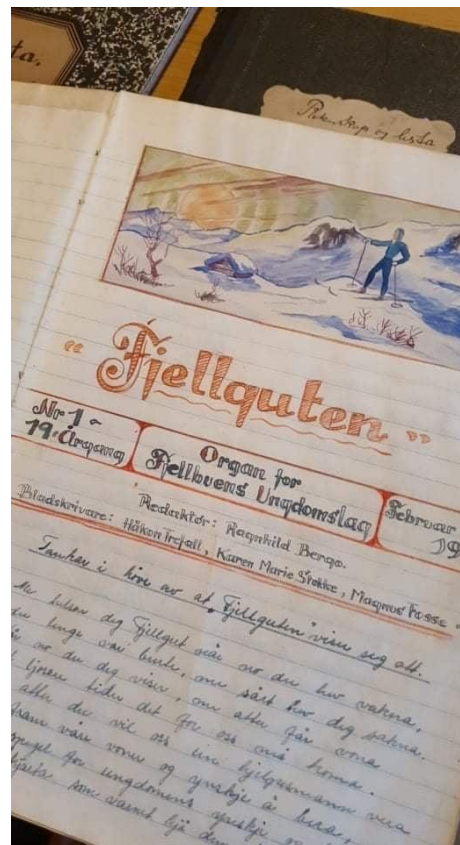 ta.
og lista
"Fjellguten"
Nr 1 -
19. Årgang
Organ for
Fjellbuens Ungdomslag
Februar
19
Redaktør: Ragnhild Bergo.
Bladskrivare: Håkon Trefall, Karen Marie Stokke, Magnus Fosse
Tankar i høve av at "Fjellguten" viser seg att.
helsar dig Fjellgut når no du hev vakna,
du lenge var burte, me sårt hev dig sakna.
no du dig viser, me atter får vona
ljosare tider det for oss må koma.
atter du vil oss ein hjelpesmann vera
fram våre voner og ynskje å bera,
spegel for ungdomens ynskje
hjarta som varmt